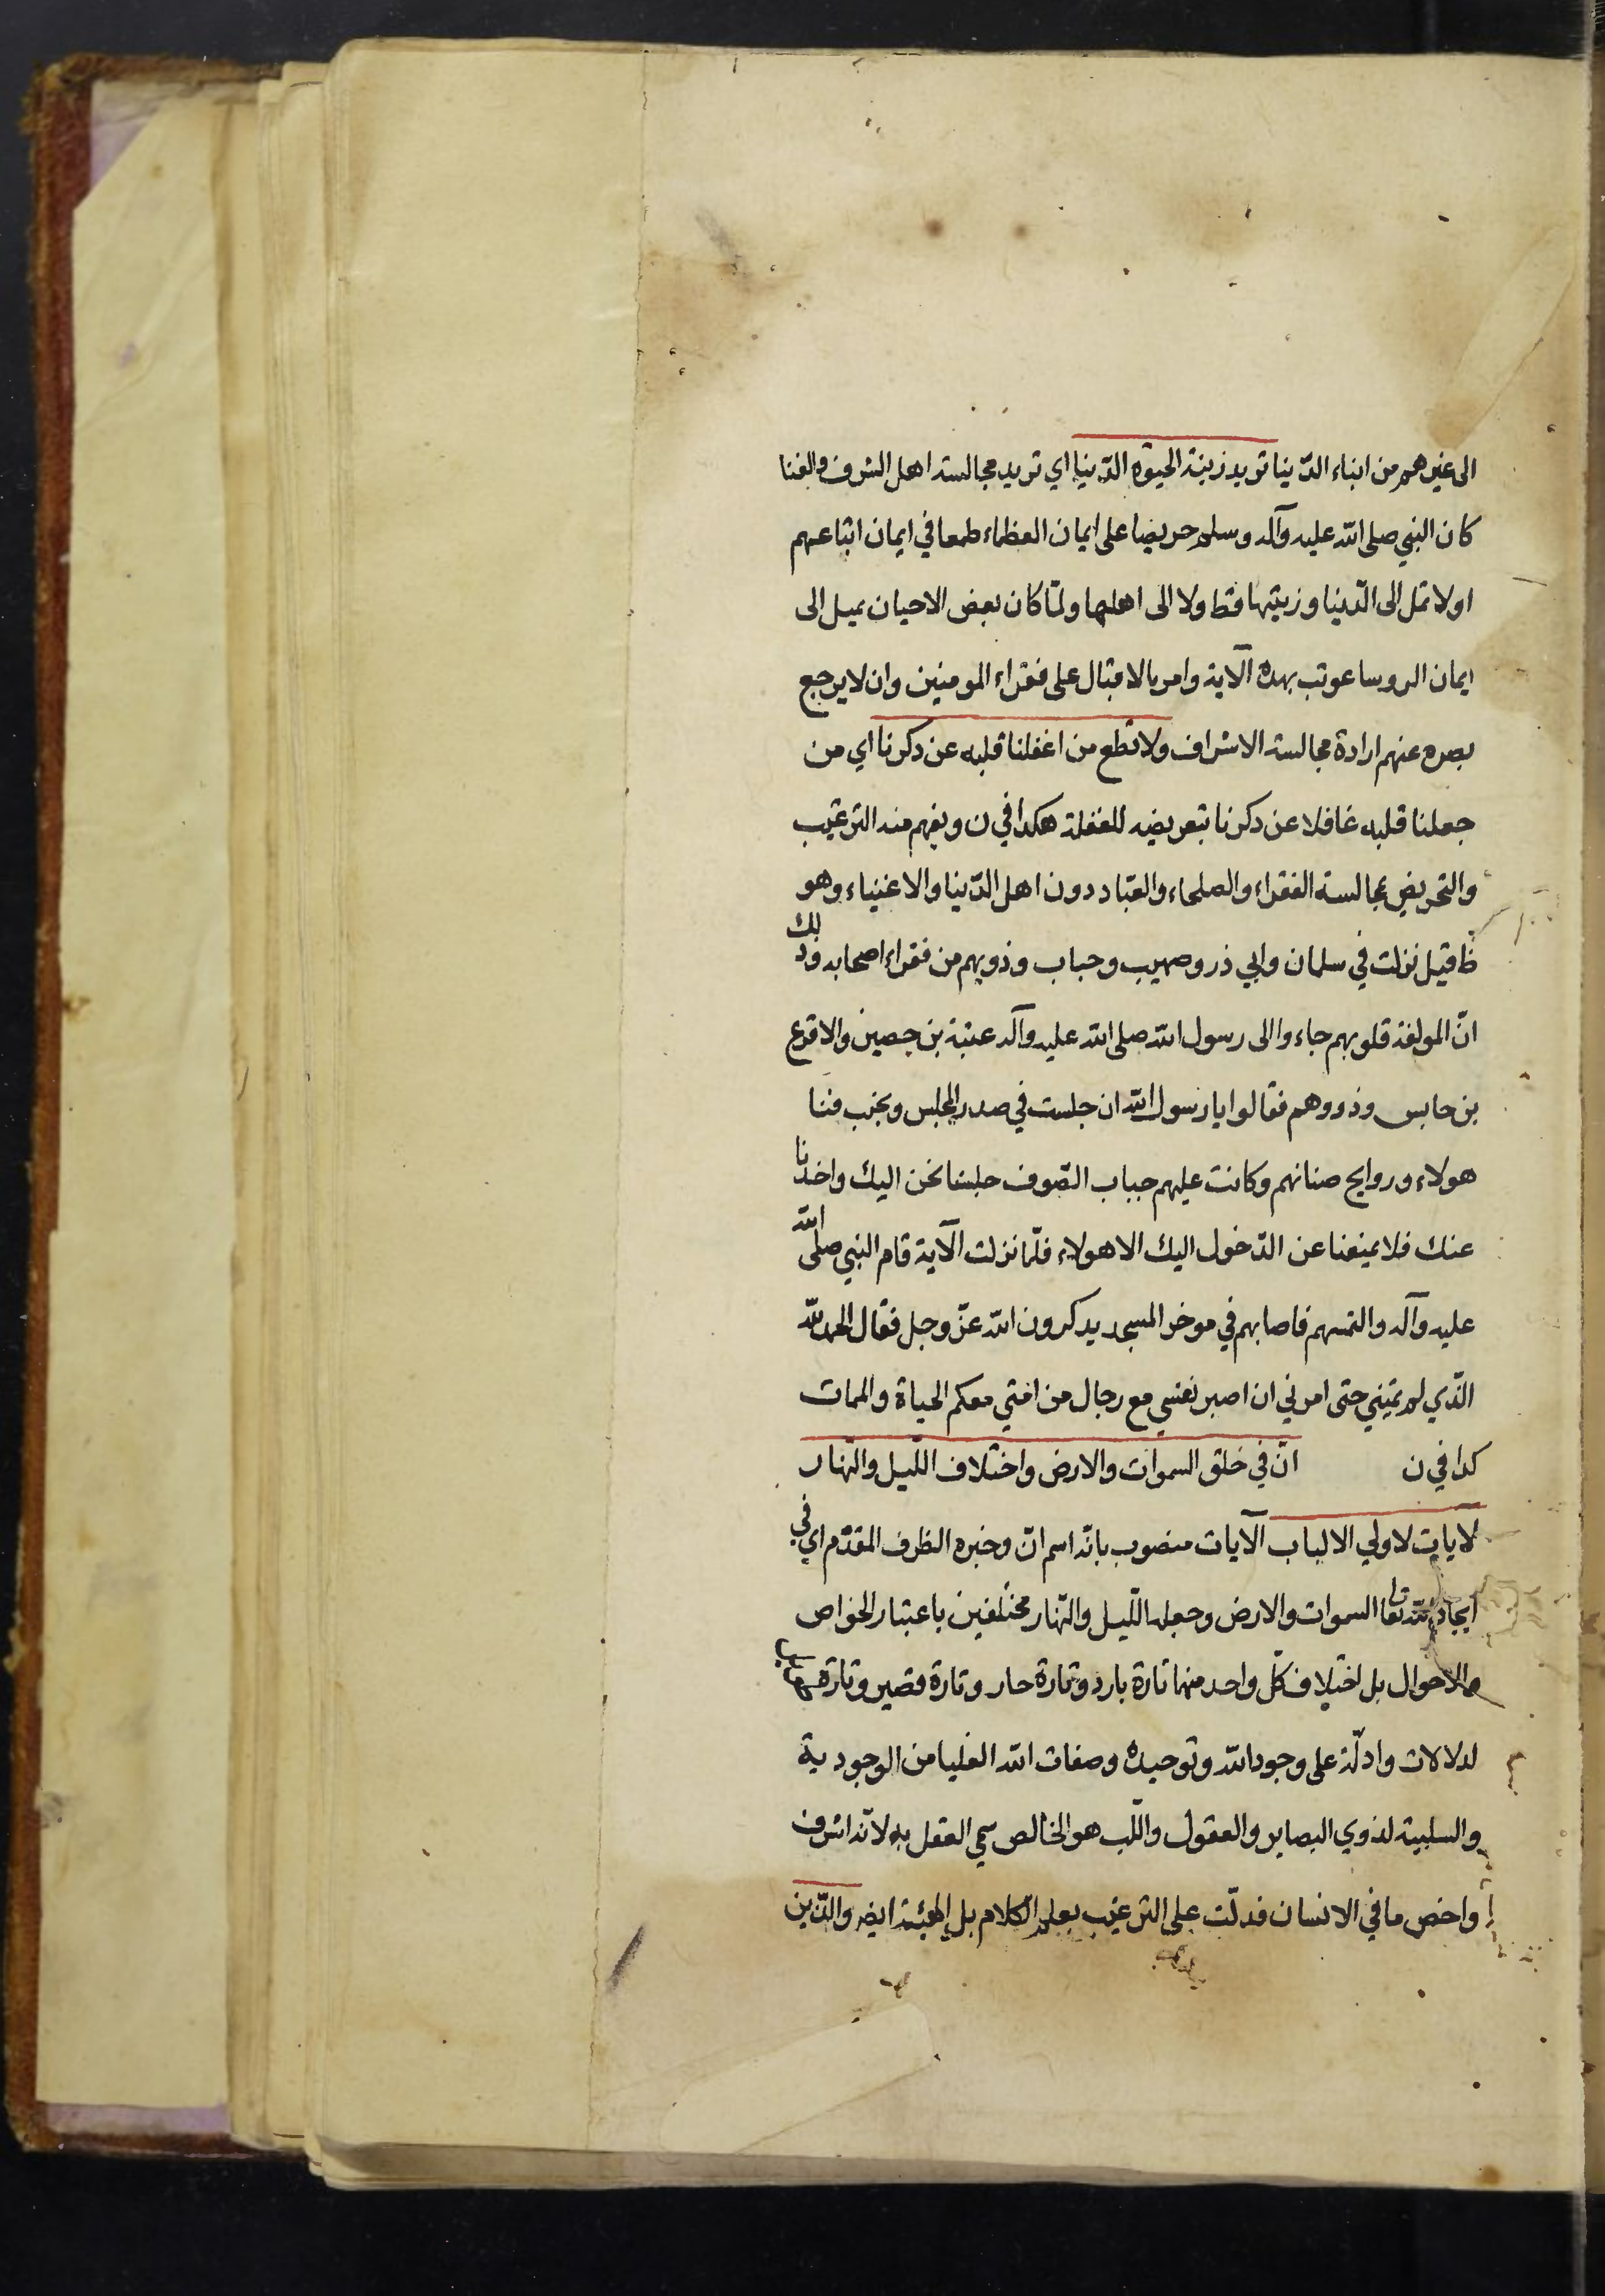 الى غيرهم من ابناء الدّنيا تريد زينة الحيوة الدّنيا اي تريد مجالسة اهل الشرف والغنا
كان النبي صلى الله عليه وآله وسلم حريصا على ايمان العظماء طمعا في ايمان اتباعهم
او لا تمل الى الدّنيا وزينتها قط ولا الى اهلها ولمّا كان بعض الاحيان يميل الى
ايمان الروسا عوتب بهذه الآية وامر بالاقبال على فقراء المومنين وان لا يرجع
بصره عنهم ارادة مجالسة الاشراف ولا تطع من اغفلنا قلبه عن ذكرنا اي من
جعلنا قلبه غافلا عن ذكرنا بتعريضه للغفلة هكذا في ن ويفهم منه الترغيب
والتحريض بمجالسة الفقراء والصلحاء والعبّاد دون اهل الدّنيا والاغنياء وهو
ظ قيل نزلت في سلمان وابي ذر وصهيب وحباب وذويهم من فقراء اصحابه وذلك
انّ المولفة قلوبهم جاءوا الى رسول الله صلى الله عليه وآله عتبة بن حصين والاقرع
بن حابس وذووهم فقالوا يا رسول الله ان جلست في صدر المجلس وتجنب منّا
هولاء وروايح صنانهم وكانت عليهم جباب الصّوف جلسنا نحن اليك واخذنا
عنك فلا يمنعنا عن الدّخول اليك الا هولاء فلمّا نزلت الآية قام النبي صلى الله
عليه وآله والتمسهم فاصابهم في موخر المسجد يذكرون الله عزّ وجل فقال الحمد لله
الّذي لم يمتني حتى امرني ان اصبر نفسي مع رجال من امّتي معكم الحياة والممات
كذا في ن انّ في خلق السموات والارض واختلاف اللّيل والنّهار
لآيات لاولي الالباب الآيات منصوب بانّه اسم انّ وخبره الظرف المقدّم اي في
ايجاد الله تعا السموات والارض وجعله اللّيل والنّهار مختلفين باعتبار الخواص
والاحوال بل اختلاف كلّ واحد منهما تارة بارد وتارة حار وتارة قصير وتارة
لدلالات وادلّة على وجود الله وتوحيده وصفات الله العليا من الوجودية
والسلبية لذوي البصاير والعقول واللّب هو الخالص سمي العقل به لانّه اشرف
واخص ما في الانسان فدلّت على الترغيب بعلم الكلام بل الهيئة ايضا والّذين